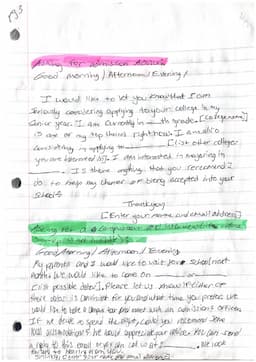 pg 3
Asking for admission Advice
Good morning/Afternoon/Evening/
I would like to let you know that I am
Seriously considering applying to your college in my
Senior year. I am currently in __th grade. [College name]
is one of my top choices right now. I am also
considering applying to ____ [list other colleges
you are interested in]. I am interested in majoring in
____. Is there anything that you recommend I
do to help my chances of being accepted into your
School?
Thank you,
[Enter your name and email address]
Asking for a
Good Morning/Afternoon/Evening
My parents and I would like to visit your School next
month. We would like to come on ____ or
[list possible dates]. Please let us know if either of
these dates is convenient for you and what time you prefer. We
would like to take a campus tour and meet with an admissions officer.
If we need to spend the night, could you recommend some
local accommodations? We would appreciate your advice. You can send
a reply to this email or you can call us at ____. We look
forward to hearing from you.